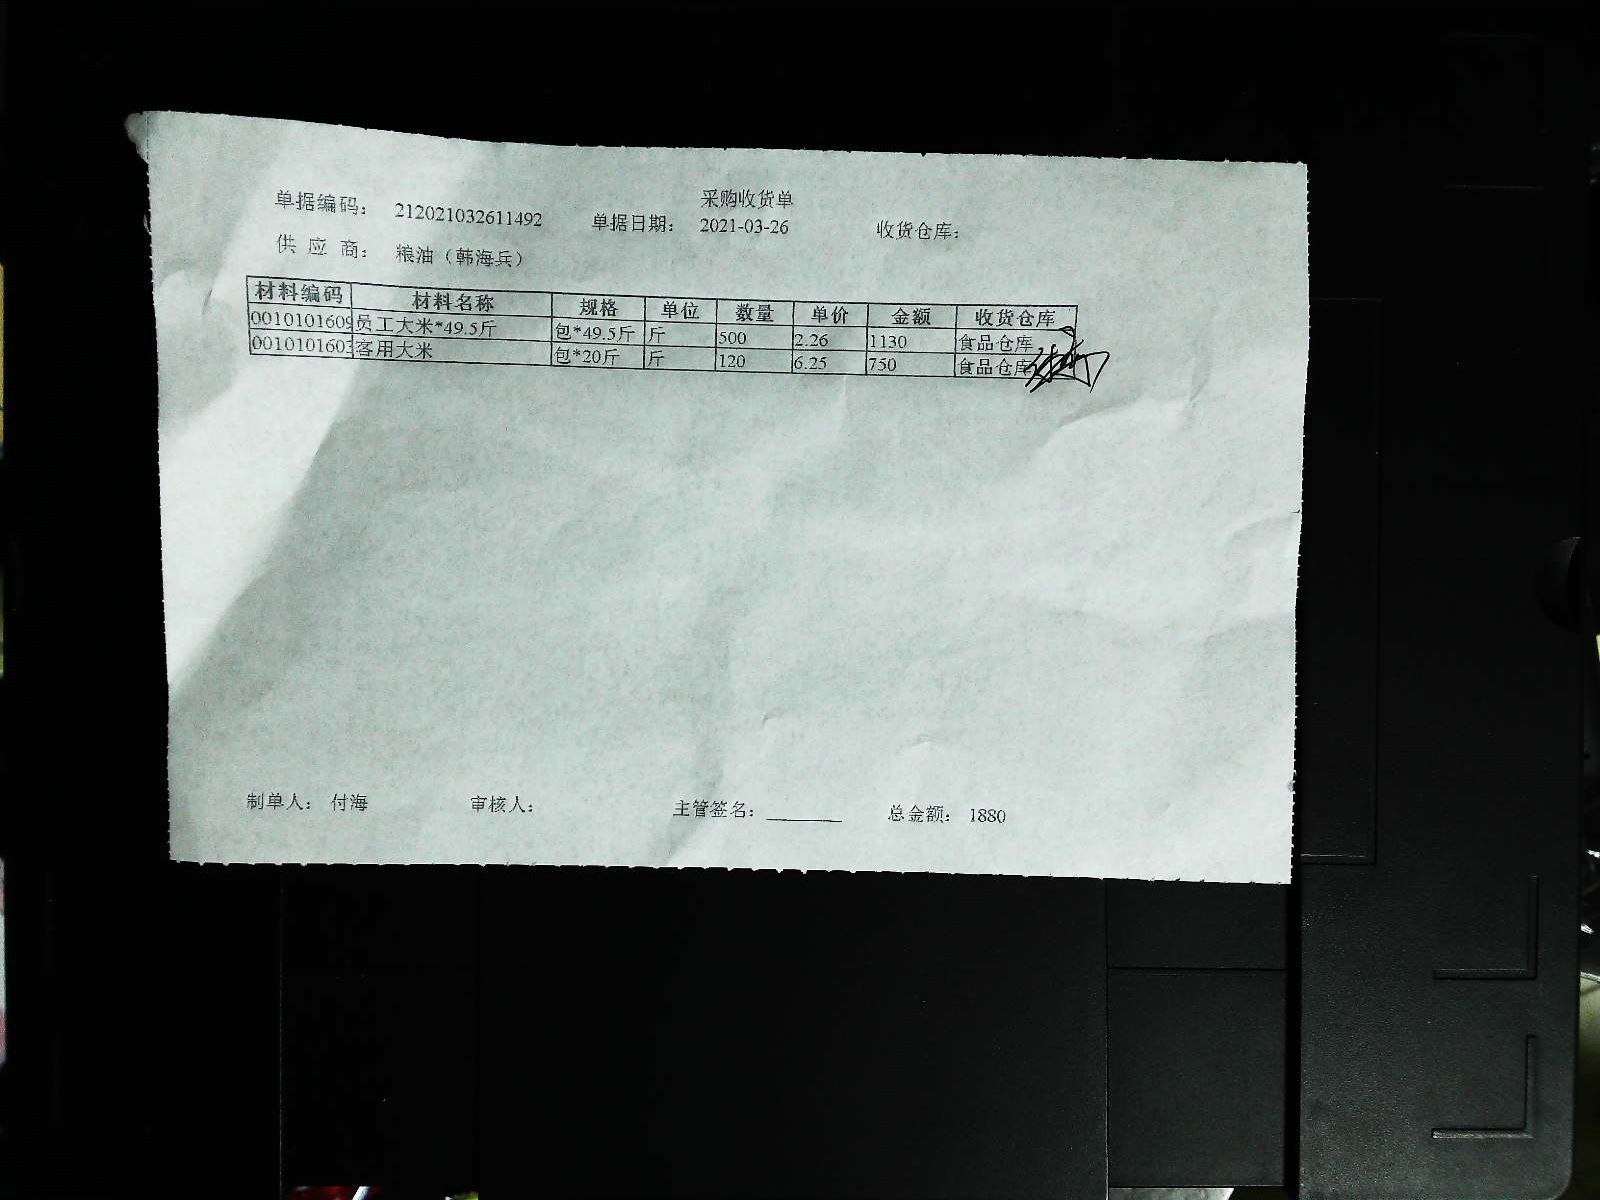 采购收货单
单据编码: 212021032611492 单据日期: 2021-03-26 收货仓库:
供 应 商: 粮油（韩海兵）
材料编码 材料名称 规格 单位 数量 单价 金额 收货仓库
0010101609 员工大米*49.5斤 包*49.5斤 斤 500 2.26 1130 食品仓库
0010101603 客用大米 包*20斤 斤 120 6.25 750 食品仓库
制单人: 付海 审核人: 主管签名: 总金额: 1880